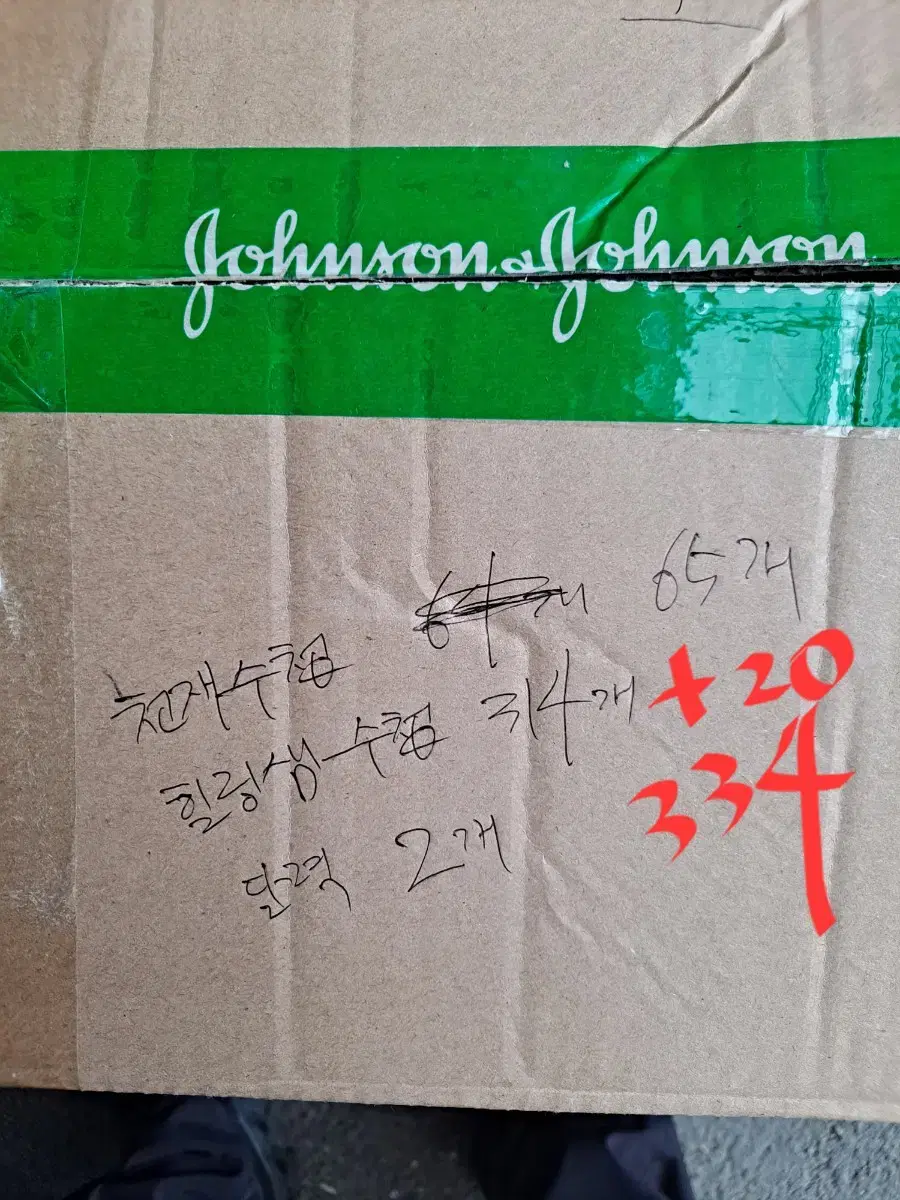 Johnson & Johnson
천재수첩 64개 65개
힐링생수첩 314개 +20
334
달력 2개